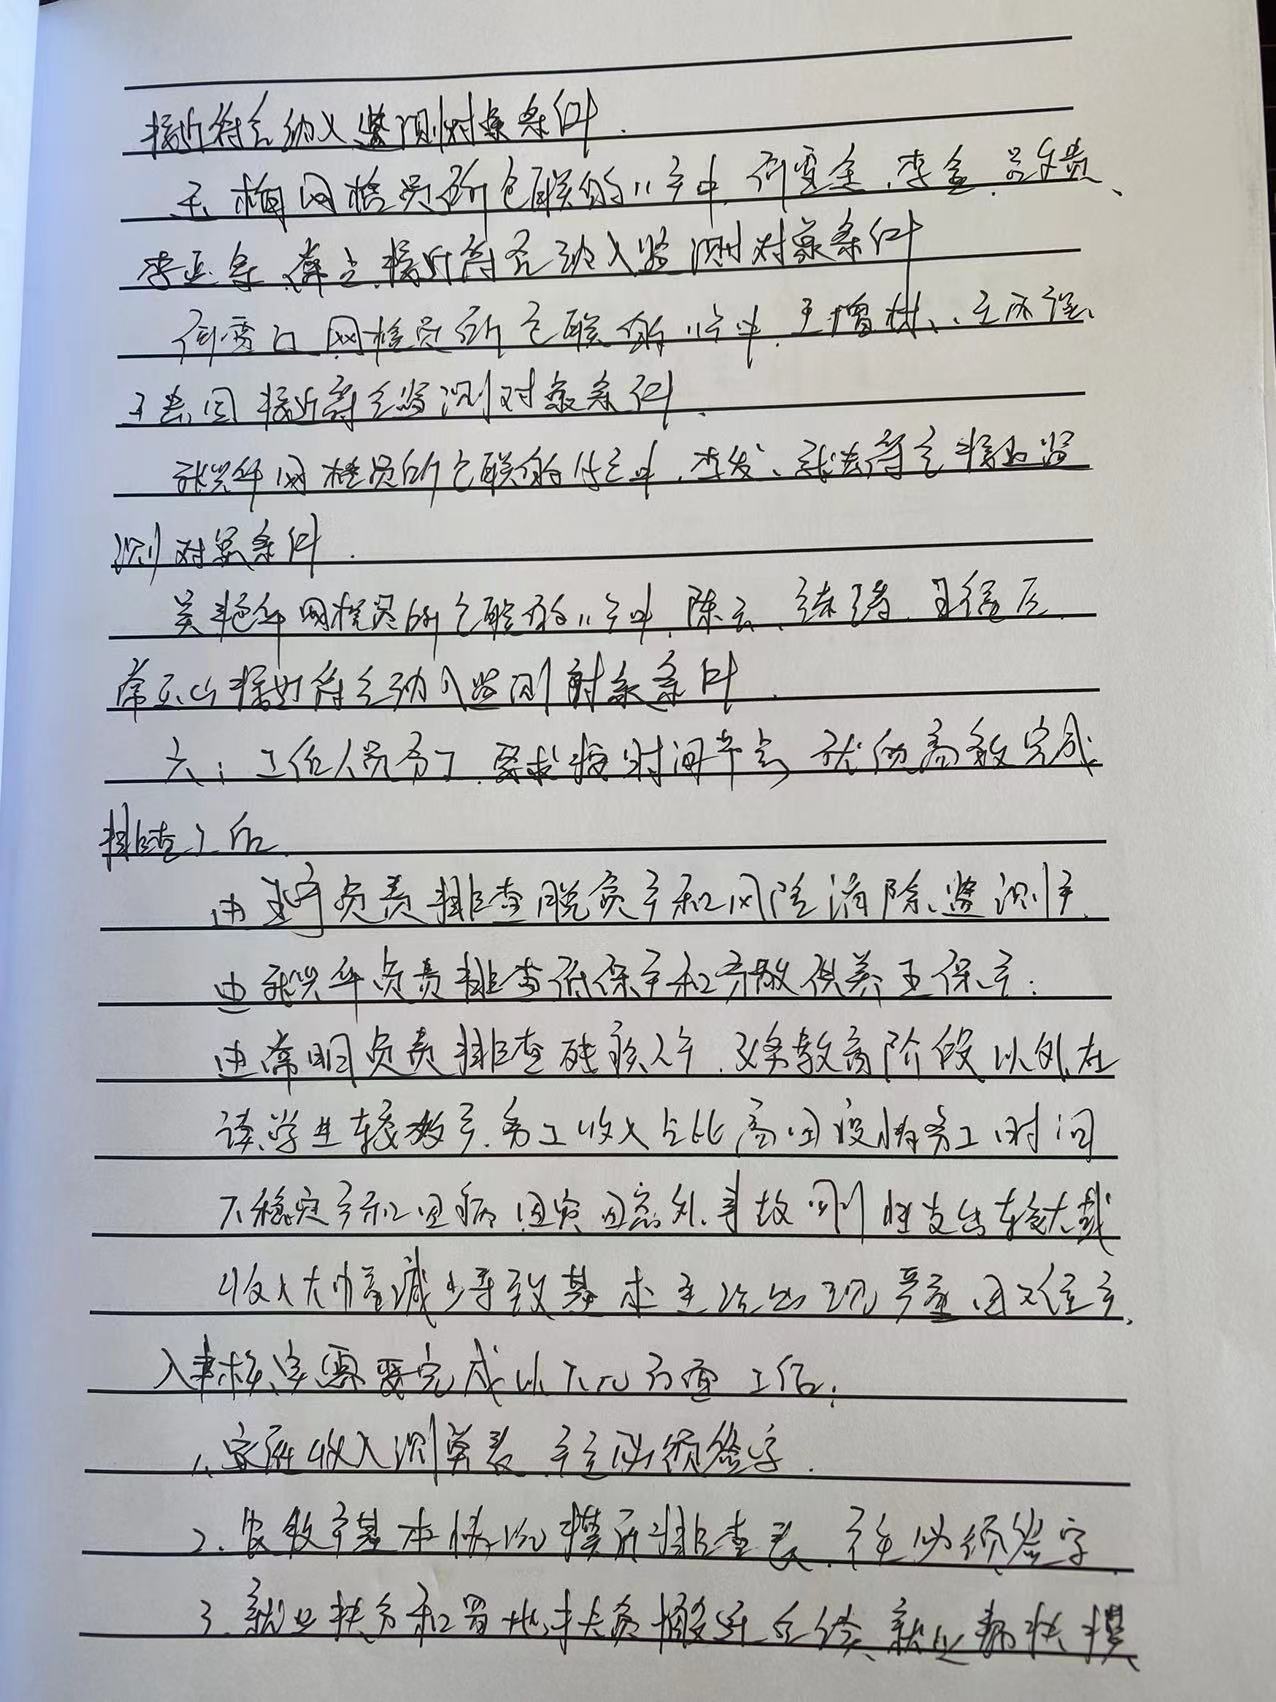 接近符合纳入监测对象条件.
王梅网格员所包联的11户中,何雯金、李金、吕文贵、
李亚金、薛占接近符合纳入监测对象条件
何雯的网格员所包联的11户中,王增林、王丙谣、
王去国接近符合监测对象条件.
张兴华网格员所包联的11户中,李发、张去符合接近监
测对象条件.
吴艳华网格员所包联的11户中,陈云、
常玉山接近符合纳入监测对象条件.
六:工作人员分工,要求按时间节点,优质高效完成
排查工作.
由 负责排查脱贫户和风险消除监测户.
由张兴华负责排查低保户和分散供养五保户:
由常明负责排查残疾人户,义务教育阶段以外在
读学生较多户,务工收入占比高因疫情务工时间
不稳定户和因病因灾因意外事故刚性支出较大或
收入大幅减少导致基本生活出现严重困难户.
入户核实需要完成以下几方面工作:
1、家庭收入测算表,户主必须签字.
2、农牧户基本情况摸底排查表,户主必须签字
3、就业扶 和 地扶贫搬迁后续、就业 扶摸